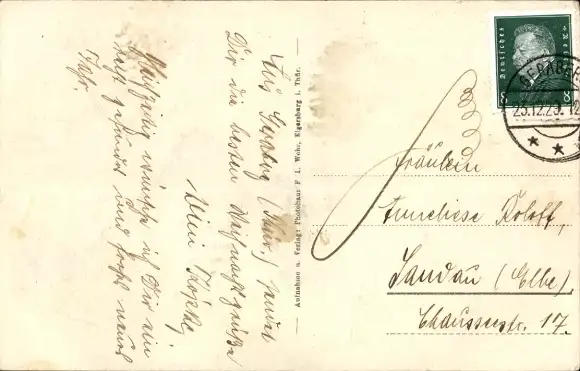 Aus Geraberg (Thür.) sendet
Dir die besten Weihnachtsgrüße
Mein
Gleichzeitig wünsche ich Dir ein
recht gesundes und frohes neues
Jahr.
Aufnahme u. Verlag: Photohaus F. L. Wehr, Elgersburg i. Thür.
Deutsches Reich
8 8
GERABERG
23.12.29. 12
Fräulein
Anneliese Roloff,
Sandau (Elbe),
Chausseestr. 17.